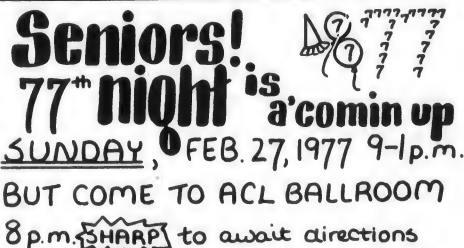 Seniors!
77th night is
a'comin up
SUNDAY, FEB. 27, 1977 9-1p.m.
BUT COME TO ACL BALLROOM
8 p.m. SHARP to await directions